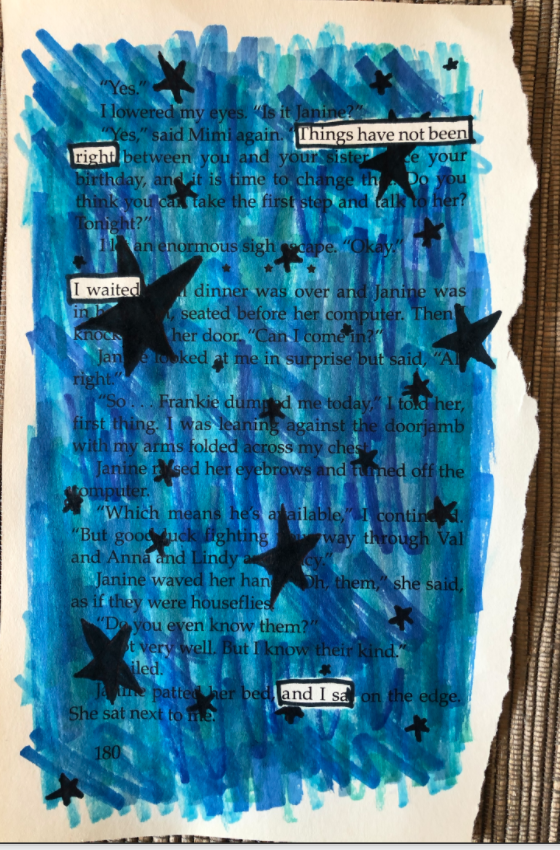 “Yes.”
I lowered my eyes. “Is it Janine?”
“Yes,” said Mimi again. “Things have not been
right between you and your sister your
birthday, and it is time to change Do you
think you can take the first step and talk to her?
Tonight?”
I an enormous sigh escape. “Okay.”
I waited dinner was over and Janine was
in seated before her computer. Then
her door. “Can I come in?”
looked at me in surprise but said,
right.”
“So . . . Frankie dumped me today,” I told her,
first thing. I was leaning against the doorjamb
with my arms folded across my chest.
Janine raised her eyebrows and turned off the
computer.
“Which means he’s available,” I continued.
“But good luck fighting way through Val
and Anna and Lindy
Janine waved her “Oh, them,” she said,
as if they were houseflies.
“Do you even know them?”
very well. But I know their kind.”
Janine patted her bed, and I sat on the edge.
She sat next to me.
180